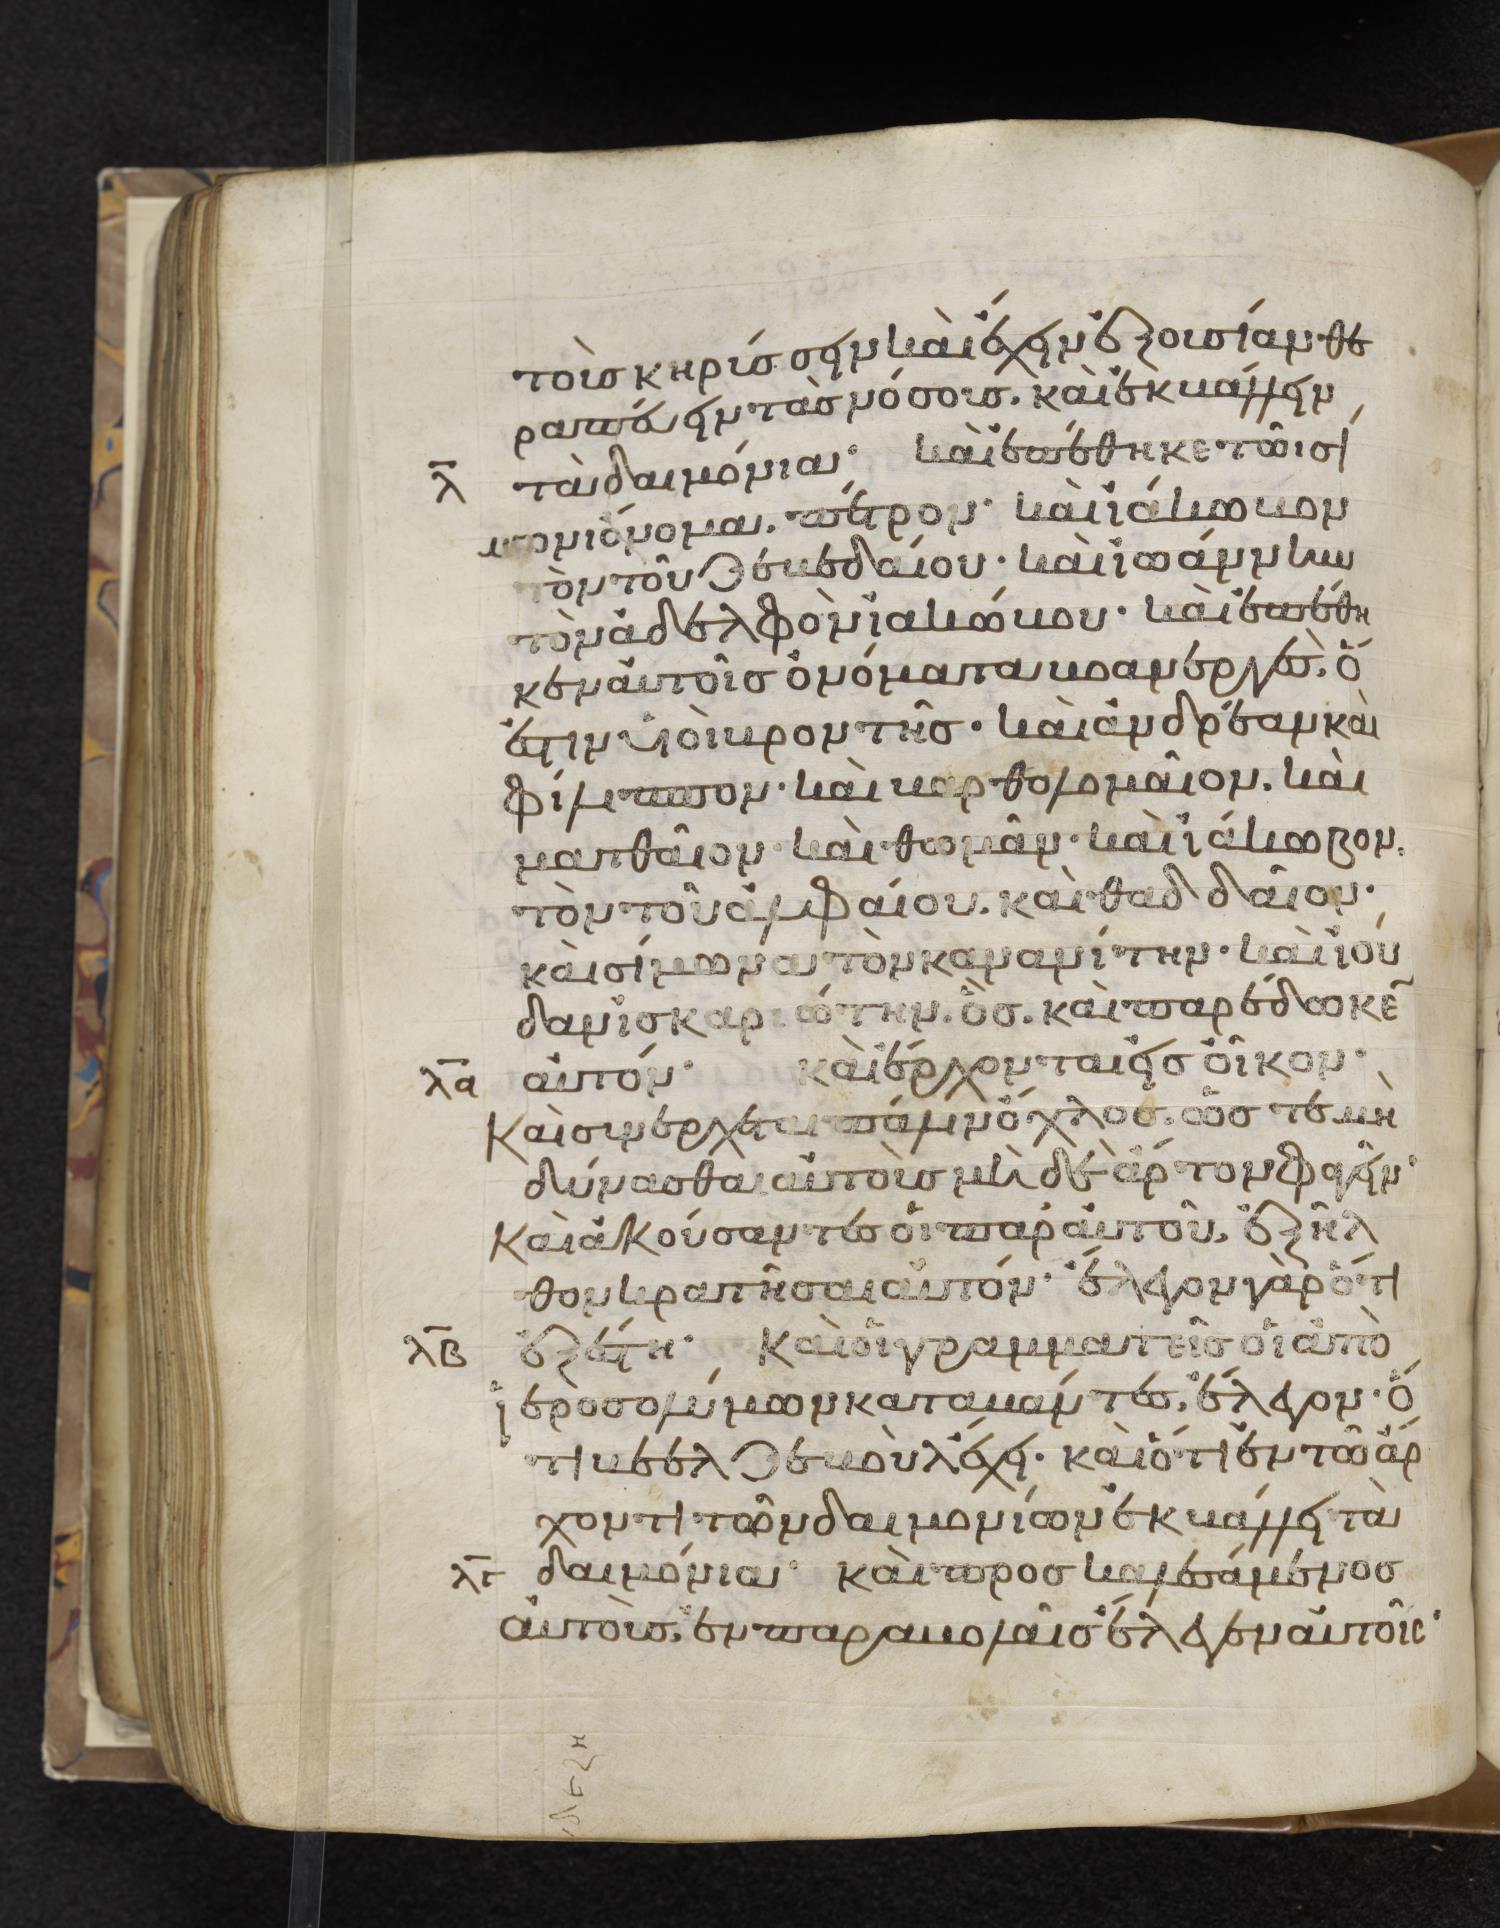 τοὺς κηρύσσειν καὶ ἔχειν ἐξουσίαν θε
ραπεύειν τὰς νόσους. καὶ ἐκβάλλειν
λ̅ τὰ δαιμόνια· καὶ ἐπέθηκε τῶ σί
μωνι ὄνομα. πέτρον· καὶ ἰάκωβον
τὸν τοῦ ζεβεδαίου· καὶ ἰωάννην
τὸν ἀδελφὸν ἰακώβου· καὶ ἐπέθη
κεν αὐτοῖς ὀνόματα βοανεργὲς. ὅ
ἐστιν υἱοὶ βροντῆς· καὶ ἀνδρέαν καὶ
φίλιππον· καὶ βαρθολομαῖον. καὶ
ματθαῖον· καὶ θωμᾶν· καὶ ἰάκωβον.
τὸν τοῦ ἀλφαίου. καὶ θαδδαῖον·
καὶ σίμωνα τὸν κανανίτην· καὶ ἰού
δαν ἰσκαριώτην. ὃς. καὶ παρέδωκε̅
λ̅α̅ αὐτόν· καὶ ἔρχονται εἰς οἶκον·
Καὶ συνέρχεται πάλιν ὄχλος. ὥς τε μὴ
δύνασθαι αὐτοὺς μὴ δὲ ἄρτον φαγεῖν·
Καὶ ἀκούσαντες οἱ παρ' αὐτοῦ. ἐξῆλ
θον κρατῆσαι αὐτόν· ἔλεγον γὰρ ὅτι
λ̅β̅ ἐξέστη· Καὶ οἱ γραμματεῖς οἱ ἀπὸ
ἱεροσολύμων καταβάντες. ἔλεγον· ὅ
τι βεελζεβοὺλ ἔχει· καὶ ὅτι ἐν τῶ ἄρ
χοντι τῶν δαιμονίων ἐκβάλλει τὰ
λ̅γ̅ δαιμόνια· καὶ προσκαλεσάμενος
αὐτοὺς. ἐν παραβολαῖς ἔλεγεν αὐτοῖς·